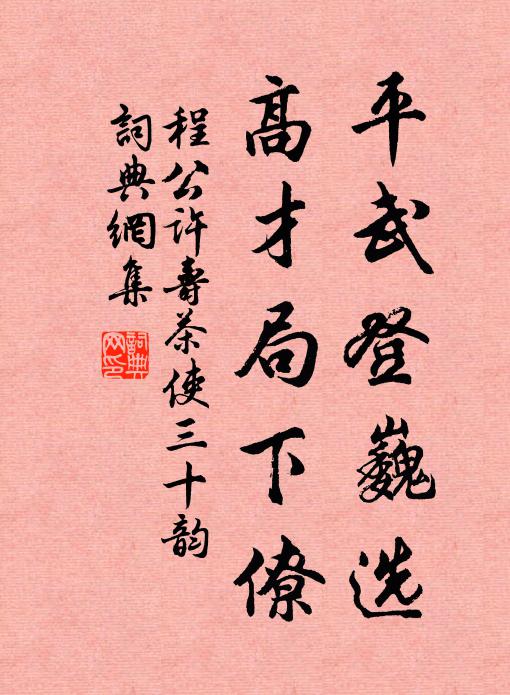 平武登巍选
高才局下僚
程公许寿茶使三十韵
词典网集
词典网印